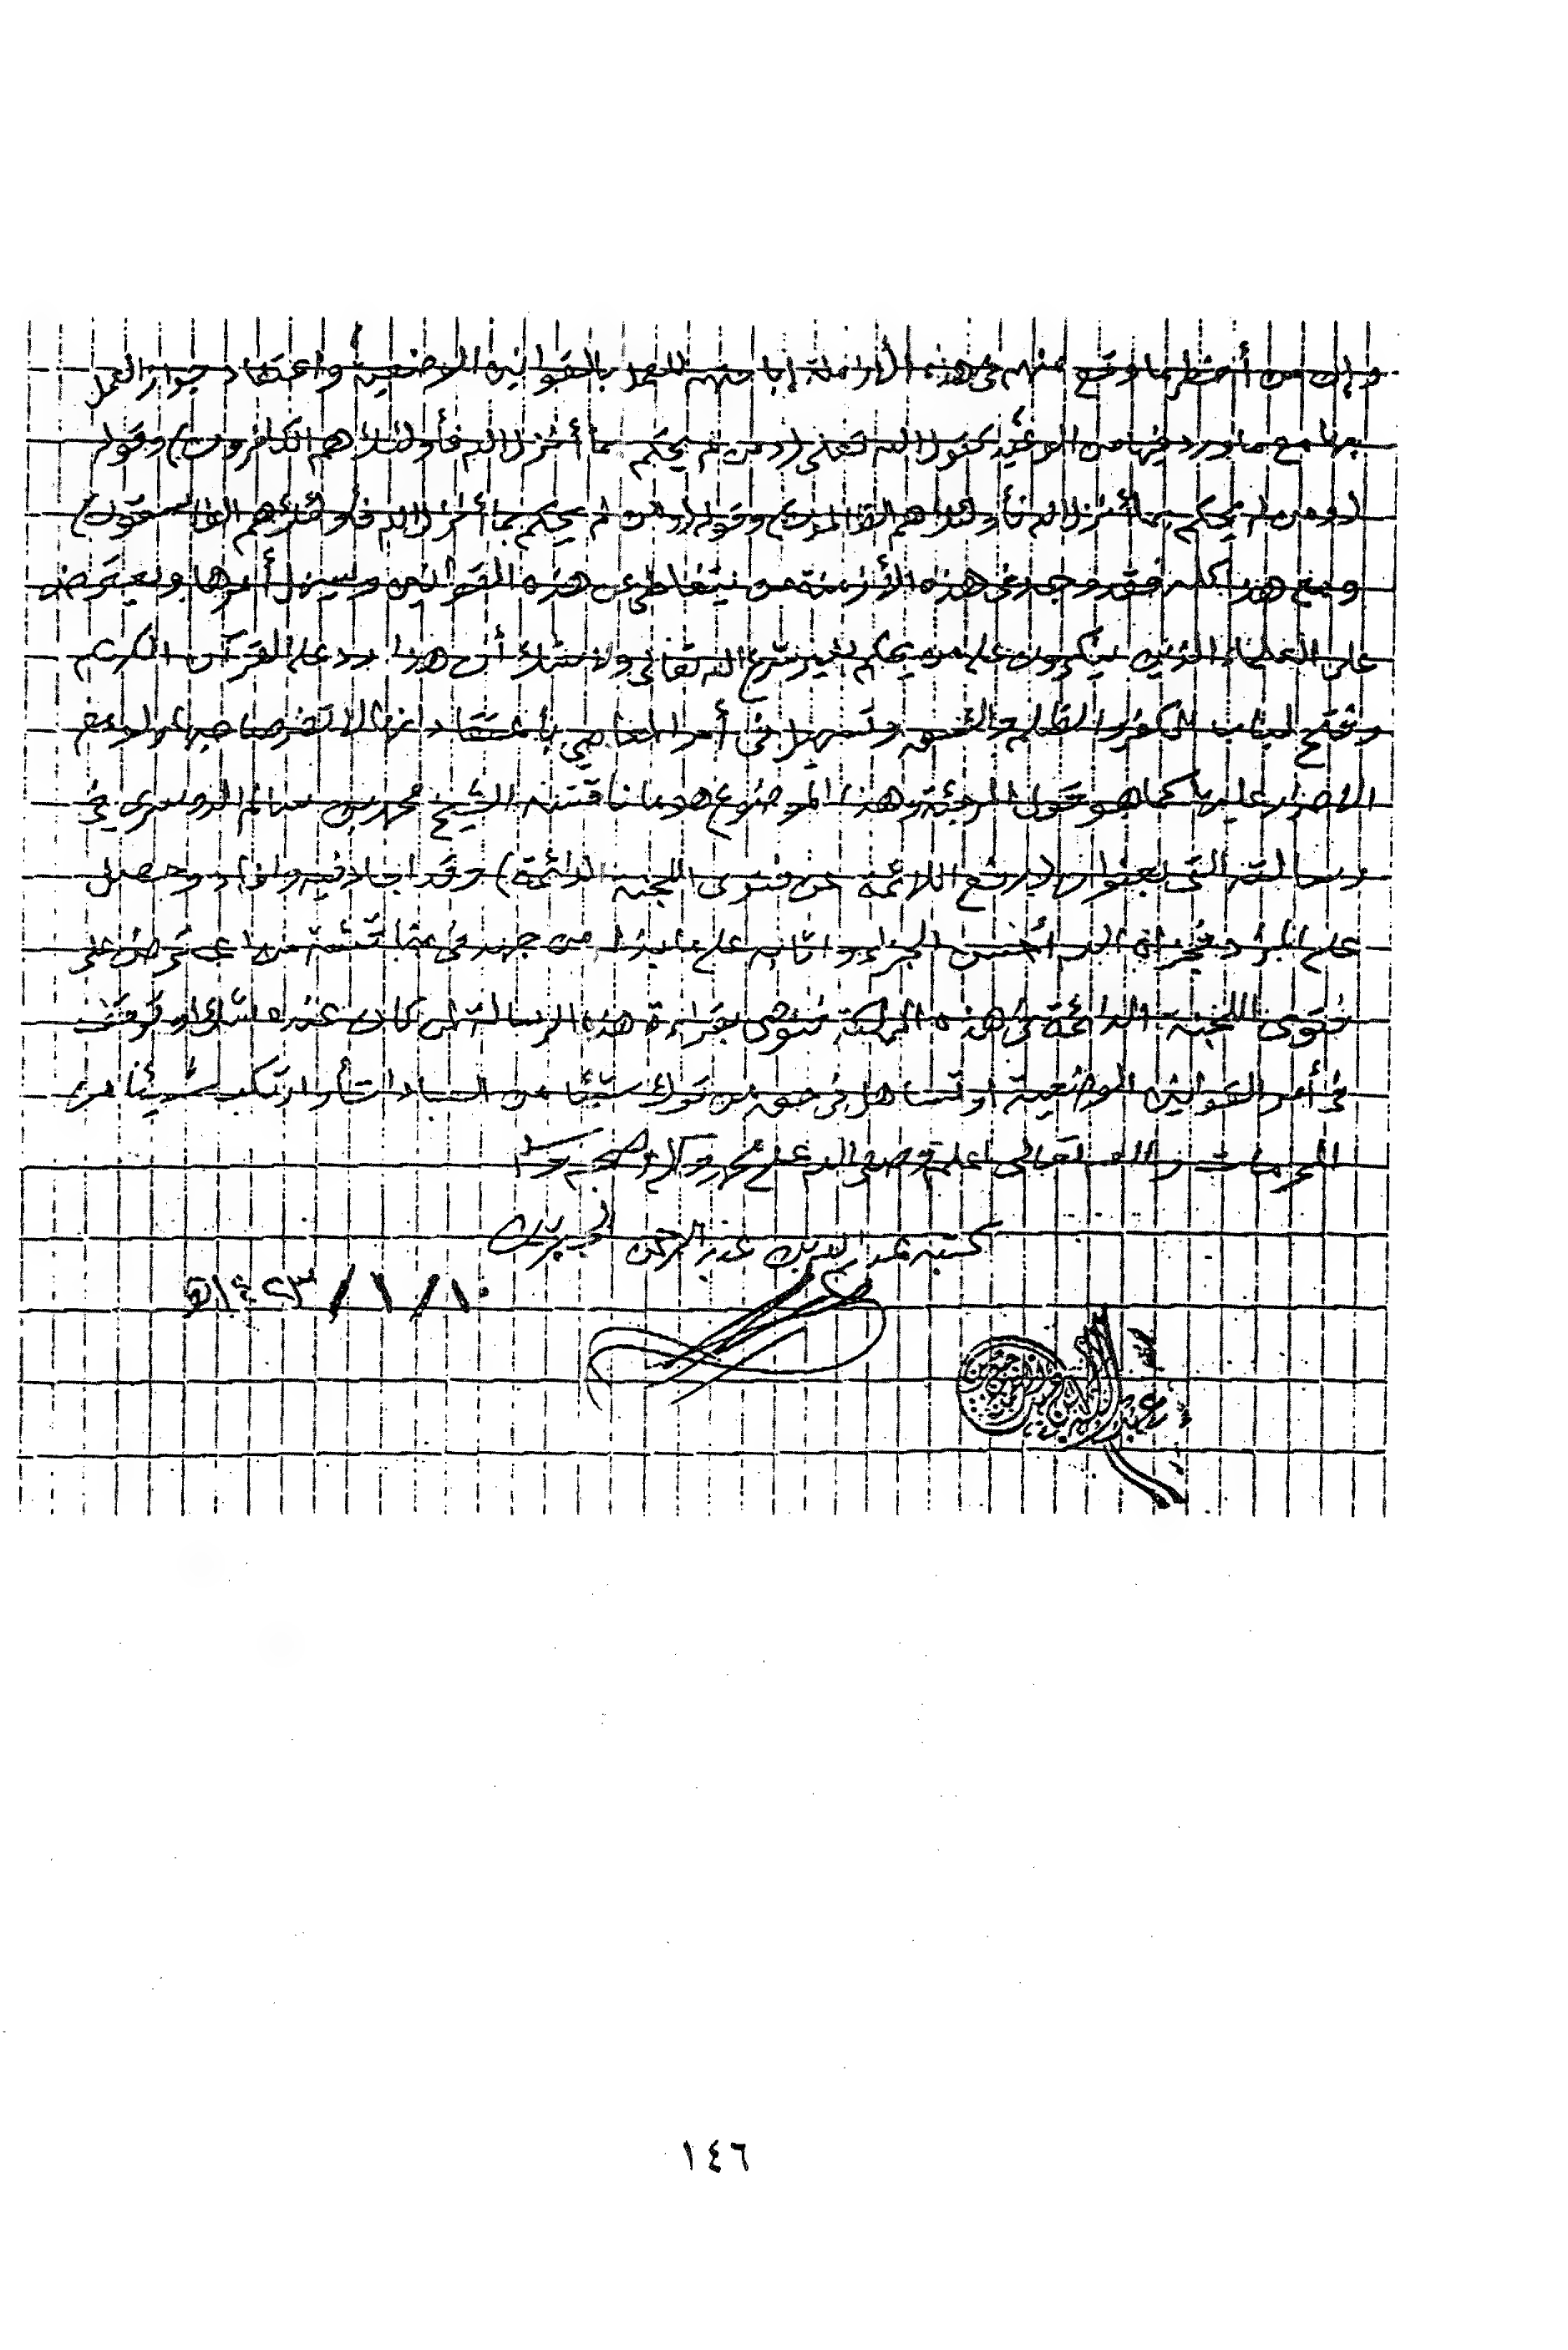 وإن من أخطر ما وقع منهم في هذه الأزمنة إباحتهم للعمل بالقوانين الوضعية واعتقاد جواز العمل
بها مع ما ورد فيها من الوعيد كقول الله تعالى (ومن لم يحكم بما أنزل الله فأولئك هم الكافرون) وقوله
(ومن لم يحكم بما أنزل الله فأولئك هم الظالمون) وقوله (ومن لم يحكم بما أنزل الله فأولئك هم الفاسقون)
ومع هذا كله فقد وجد في هذه الأزمنة من يتغاطى عن هذه القوانين ويسهل أمرها ويعترض
على العلماء الذين ينكرون على من يحكم بغير شرع الله تعالى ولا شك أن هذا رد على القرآن الكريم
وفتح لباب الكفر والظلم والفسق وتسهيل في أمر المعاصي باعتقاد انها لا تضر صاحبها ولو مع
الاصرار عليها كما هو قول المرجئة وهذا الموضوع هو ما ناقشه الشيخ محمد بن سالم الدوسري في
رسالته التي بعنوان (رفع اللائمة عن فتوى اللجنة الدائمة) وقد اجاد فيه وافاد وحصل
على المراد فجزاه الله أحسن الجزاء واثابه على ما بذل من جهد في مناقشة من اعترض على
فتوى اللجنة الدائمة في هذه المملكة فنوصي بقراءة هذه الرسالة لمن كان عنده شك او توقف
في أمر القوانين الوضعية او تساهل في حق من ترك شيئا من العبادات أو ارتكب شيئا من
المحرمات والله تعالى اعلم وصلى الله على محمد وآله وصحبه وسلم
كتبه عبد الله بن عبد الرحمن الجبرين
١٠/١/١٤٢٣هـ
١٤٦